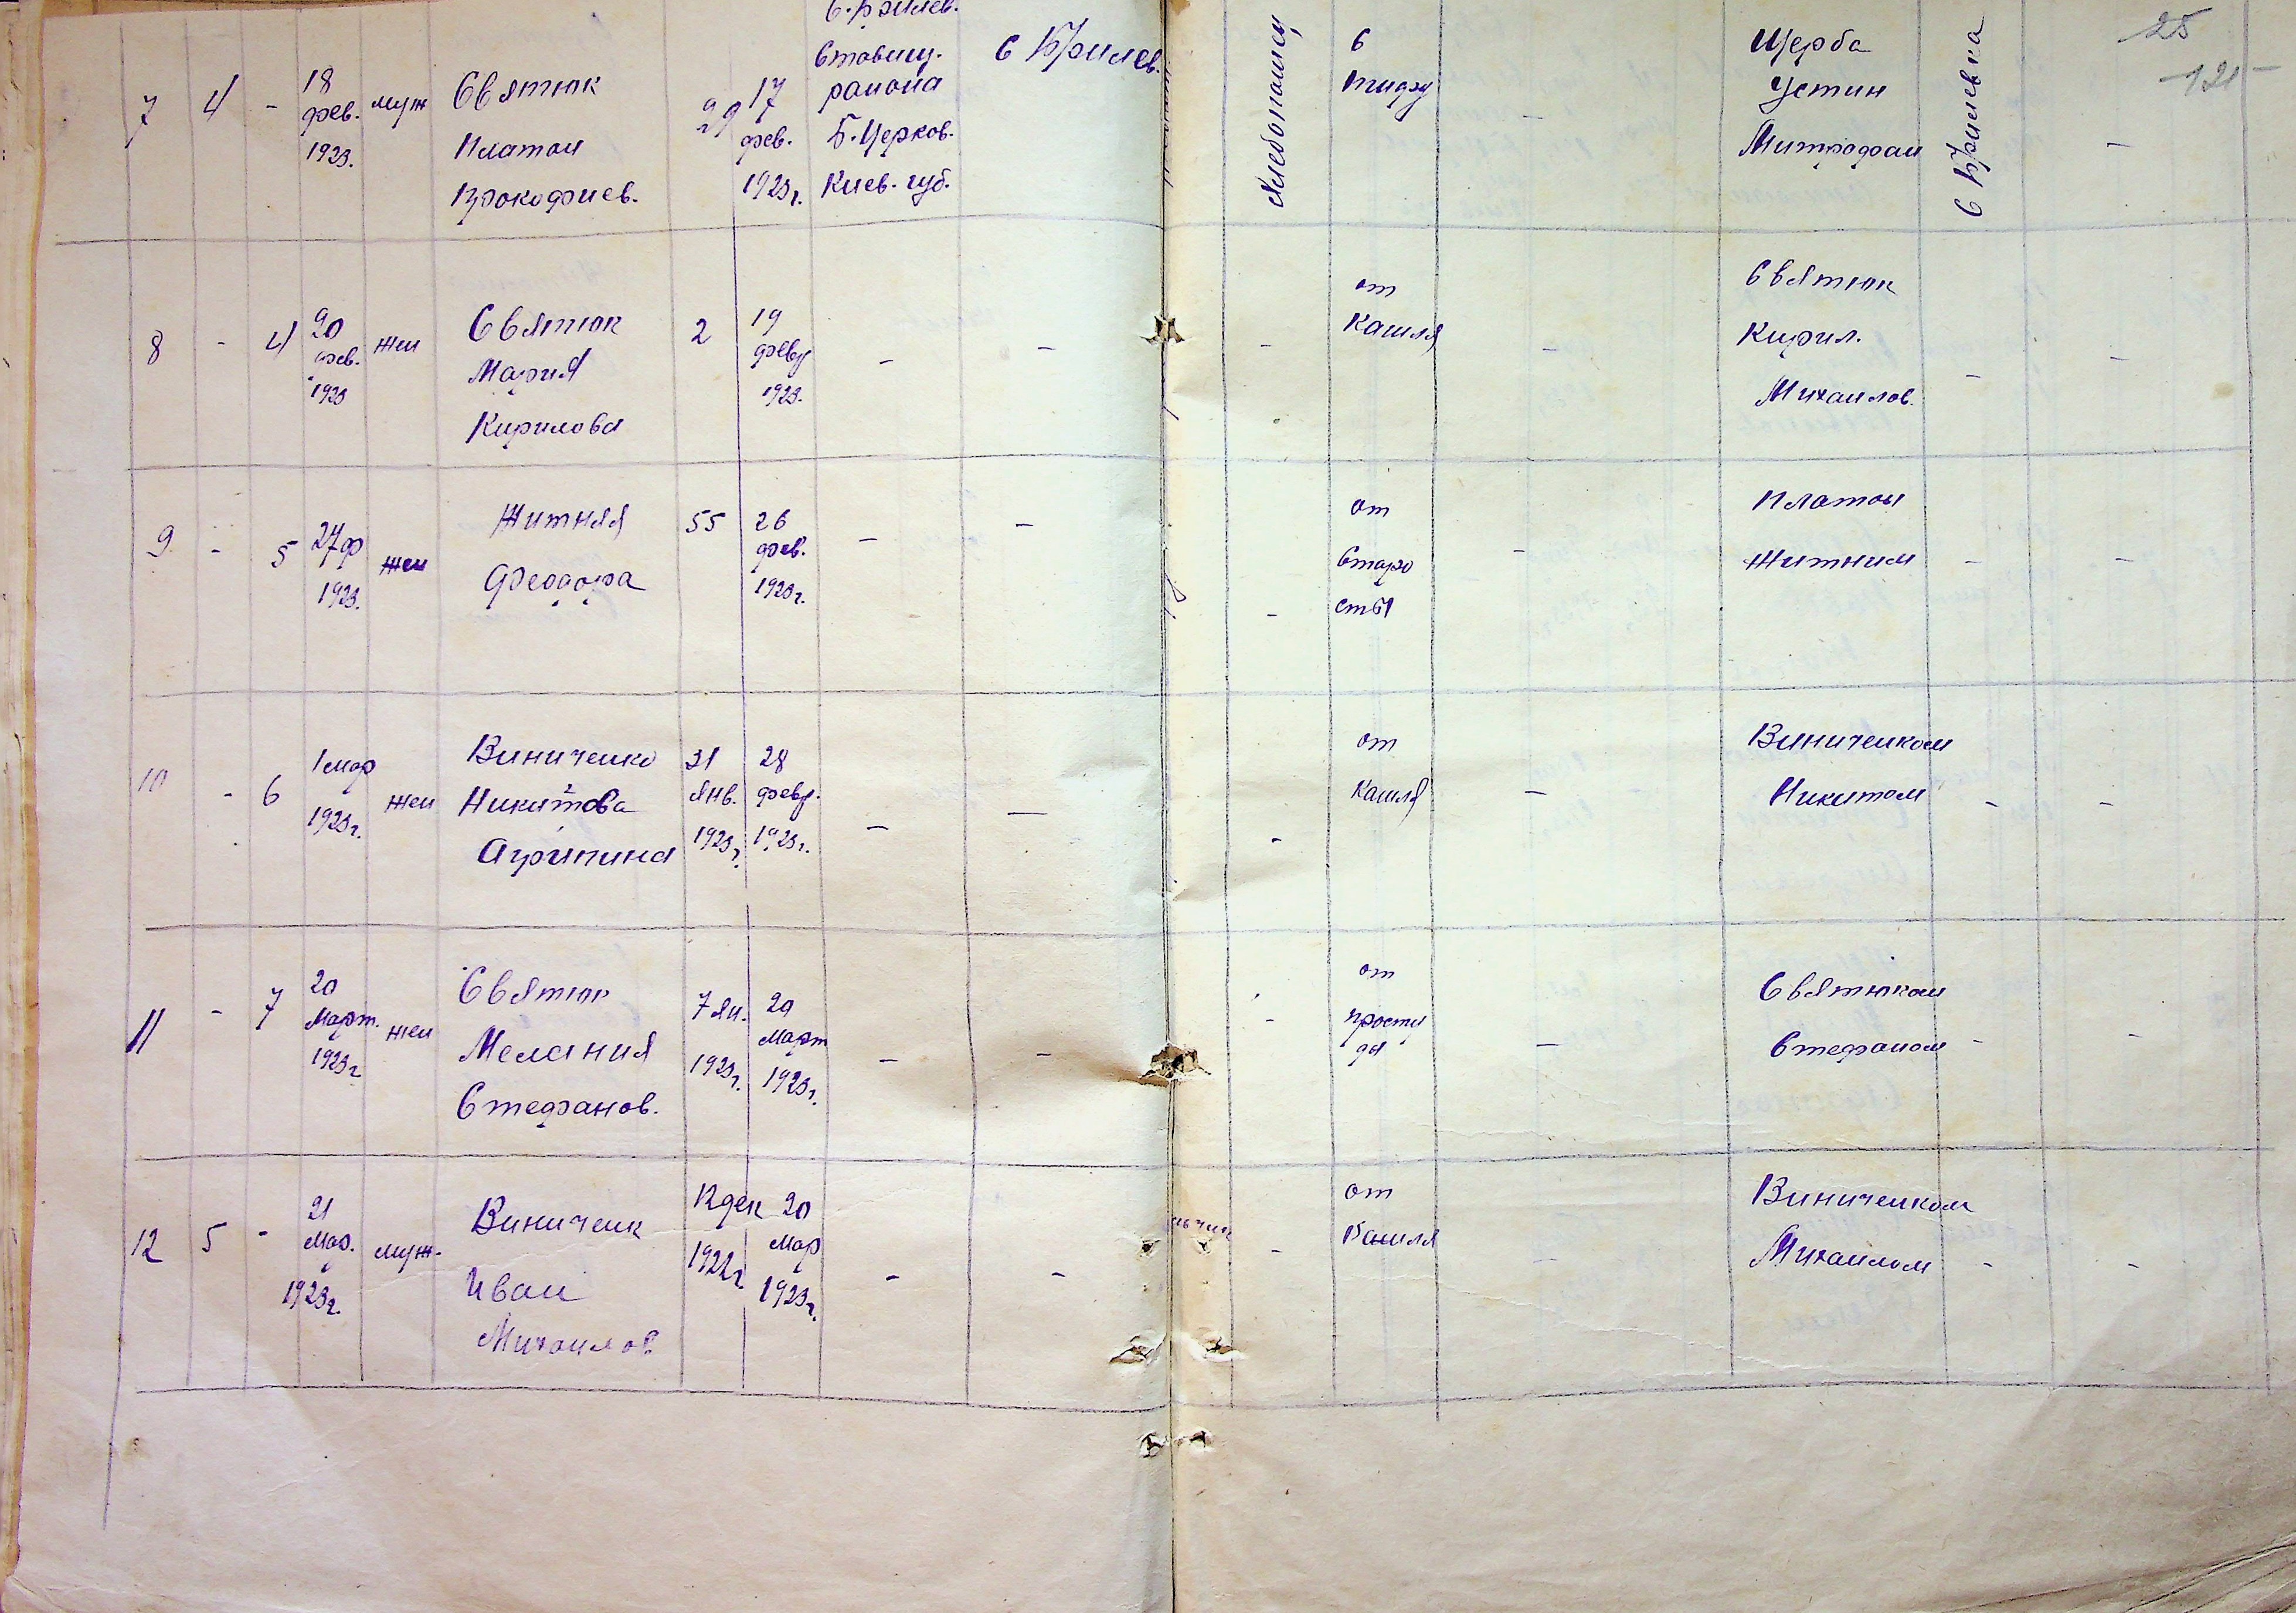 25
121
7 4 - 18 фев. 1923. муж Святюк Платон Прокофиев. 29 17 фев. 1923г.
Ставищ. района Б. Церков. Киев. губ.
Хлебопашец
в
тифу
-
Щерба Устин Митрофан
-
8 - 4 20 фев. 1923 жен Святюк Мария Кирилова 2 19 февр 1923. - -
- от Кашля - Святюк Кирил. Михаилов. - -
9. - 5 27 ф 1923. жен Житняя Феодора 55 26 фев. 1923г. - -
- от Старо сты - Платон Житним - -
10 - 6 1 мар 1923г. жен Виниченко Никитова Агрипина 31 Янв. 1923г. 28 февр. 1923г. - -
- от Кашля - Виниченком Никитом - -
11 - 7 20 Март. 1923г жен Святюк Мелания Стефанов. 7 Ян. 1923г. 20 Март 1923г. - -
- от просту ды - Святюком Стефаном - -
12 5 - 21 Мар. 1923г. муж. Виниченк Иван Михаилов 12 дек 1922г 20 Мар 1923г. - -
- от Кашля - Виниченком Михаилом - -